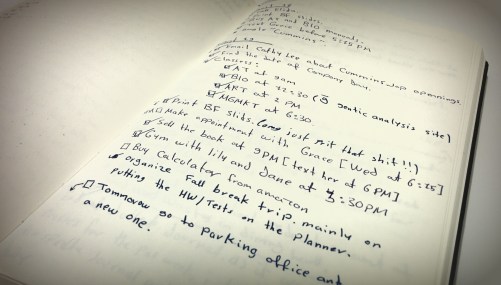 BF slides.
Grace before 5:55 PM
"Cumming"
✓ Email Cathy Lee about Cummins Job openings
✓ Find the date of Company Day.
✓ Classes:
☑ AT at 9am
☑ BIO at 12:30 (
☑ ART at 2 PM
☑ MGMKT at 6:30
✓ Print BF Slids. (omg just print that shit!!)
☐ Make appointment with Grace [Wed at 6:15]
☑ Sell the book at 9PM [text her at 6PM]
☑ Gym with Lily and Jane at 3:30PM
☐ Buy Calculator from amazon
organize Fall break trip. mainly on
Putting the HW/Tests on the planner.
✓ ☐ Tommorow go to parking office and
a new one.